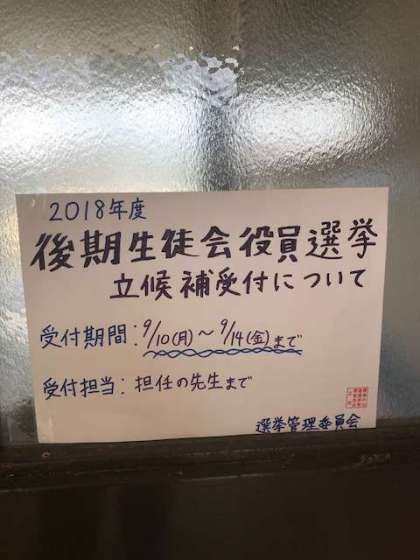 2018年度
後期生徒会役員選挙
立候補受付について
受付期間：9/10(月)～9/14(金)まで
受付担当：担任の先生まで
選挙管理委員会